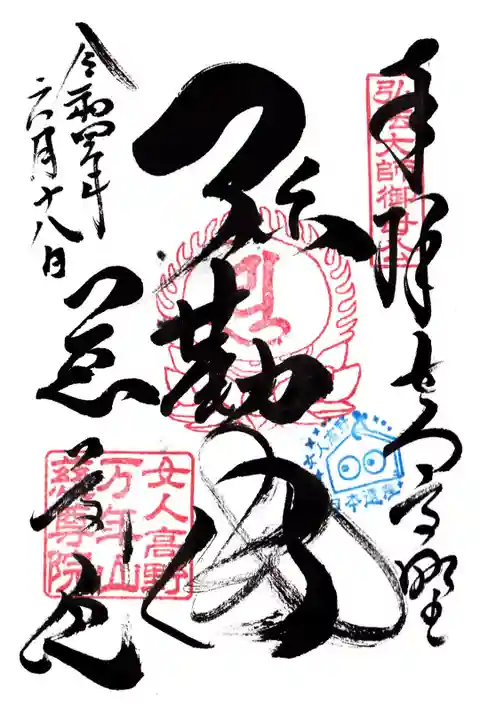 奉拝 女人高野
弘法大師御母公
弥勒佛
令和四年
六月十八日
慈尊院
女人高野
万年山
慈尊院
女人高野
日本遺産